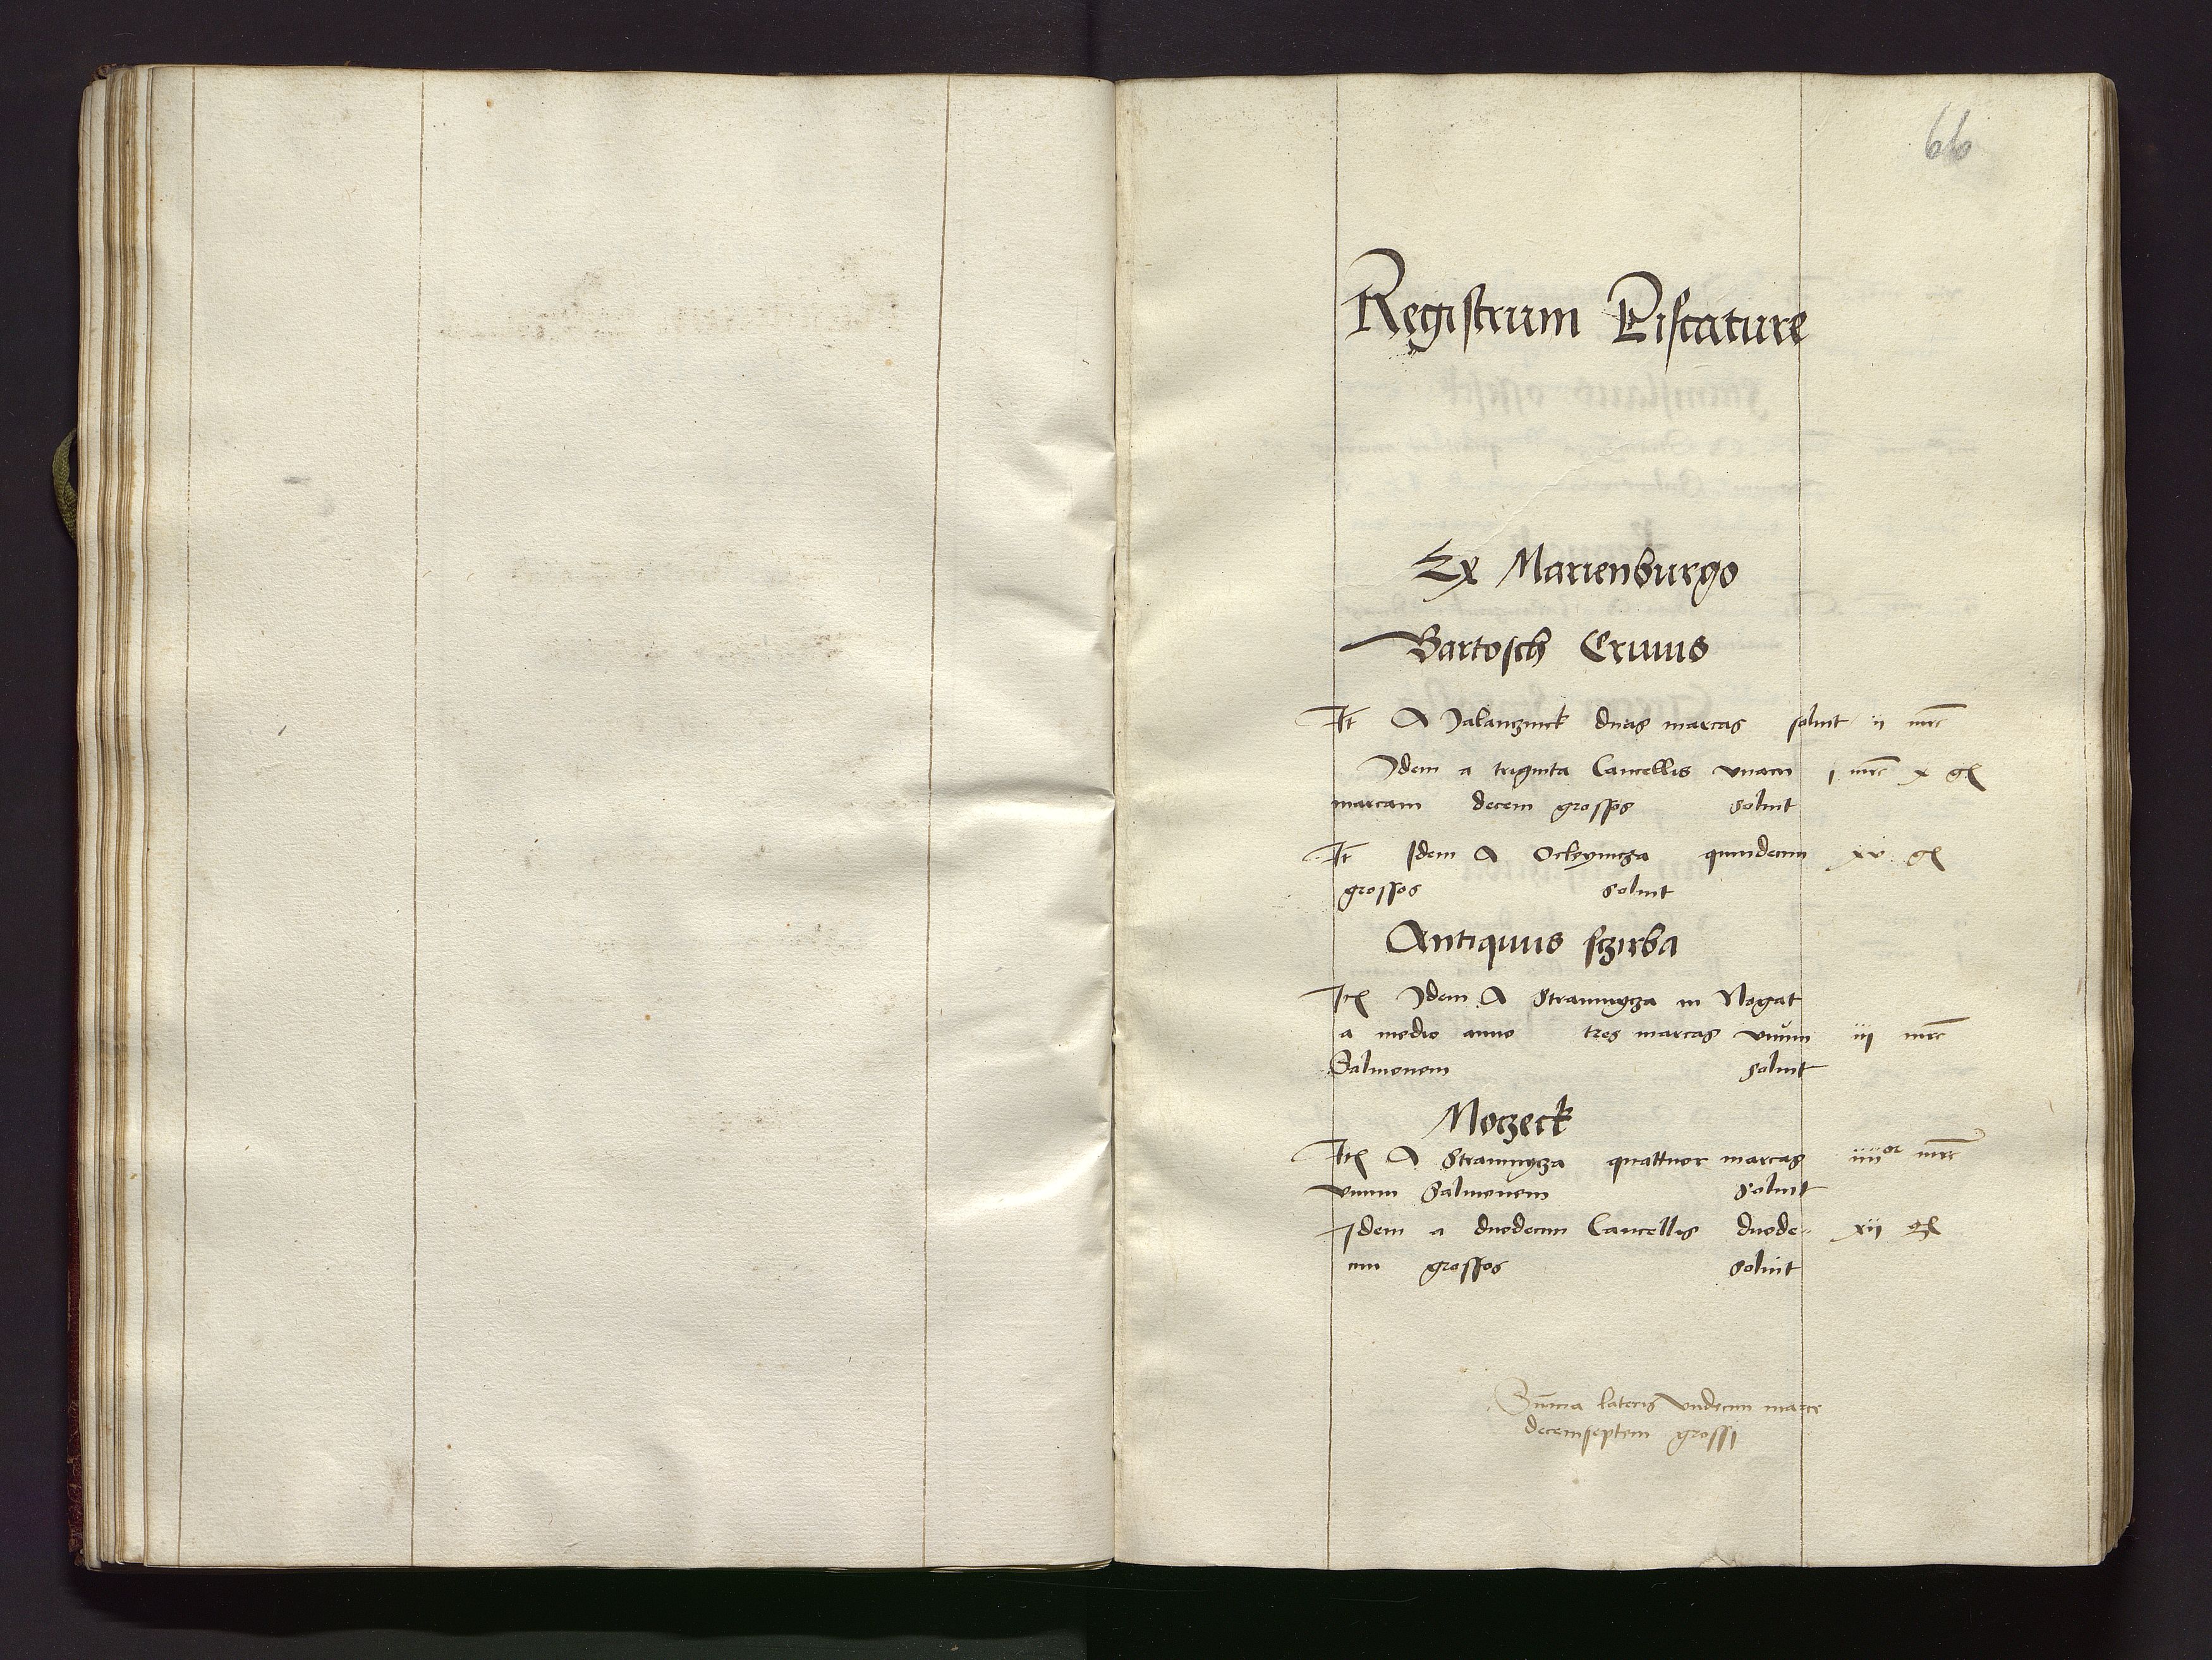 66
Registrum Piscature
Ex Marienburgo
Bartosch Cruus
It A Jalanczinck duas marcas soluit ii mrc
Idem a triginta Cancellis vnam i mrc x gr
marcam decem grossos soluit
It Idem A Ockynicza quindecim xv gr
grossos soluit
Antiquus sczirba
Ite Idem A Stramnycza in Nogat
a medio anno tres marcas vnum iii mrc
Salmonem soluit
Moczeck
Ite A Stramnycza quattuor marcas iiiior mrc
vnum Salmonem soluit
Idem a duodecim Cancellis duode- xii gr
cim grossos soluit
Summa lateris vndecim marce
decemseptem grossi